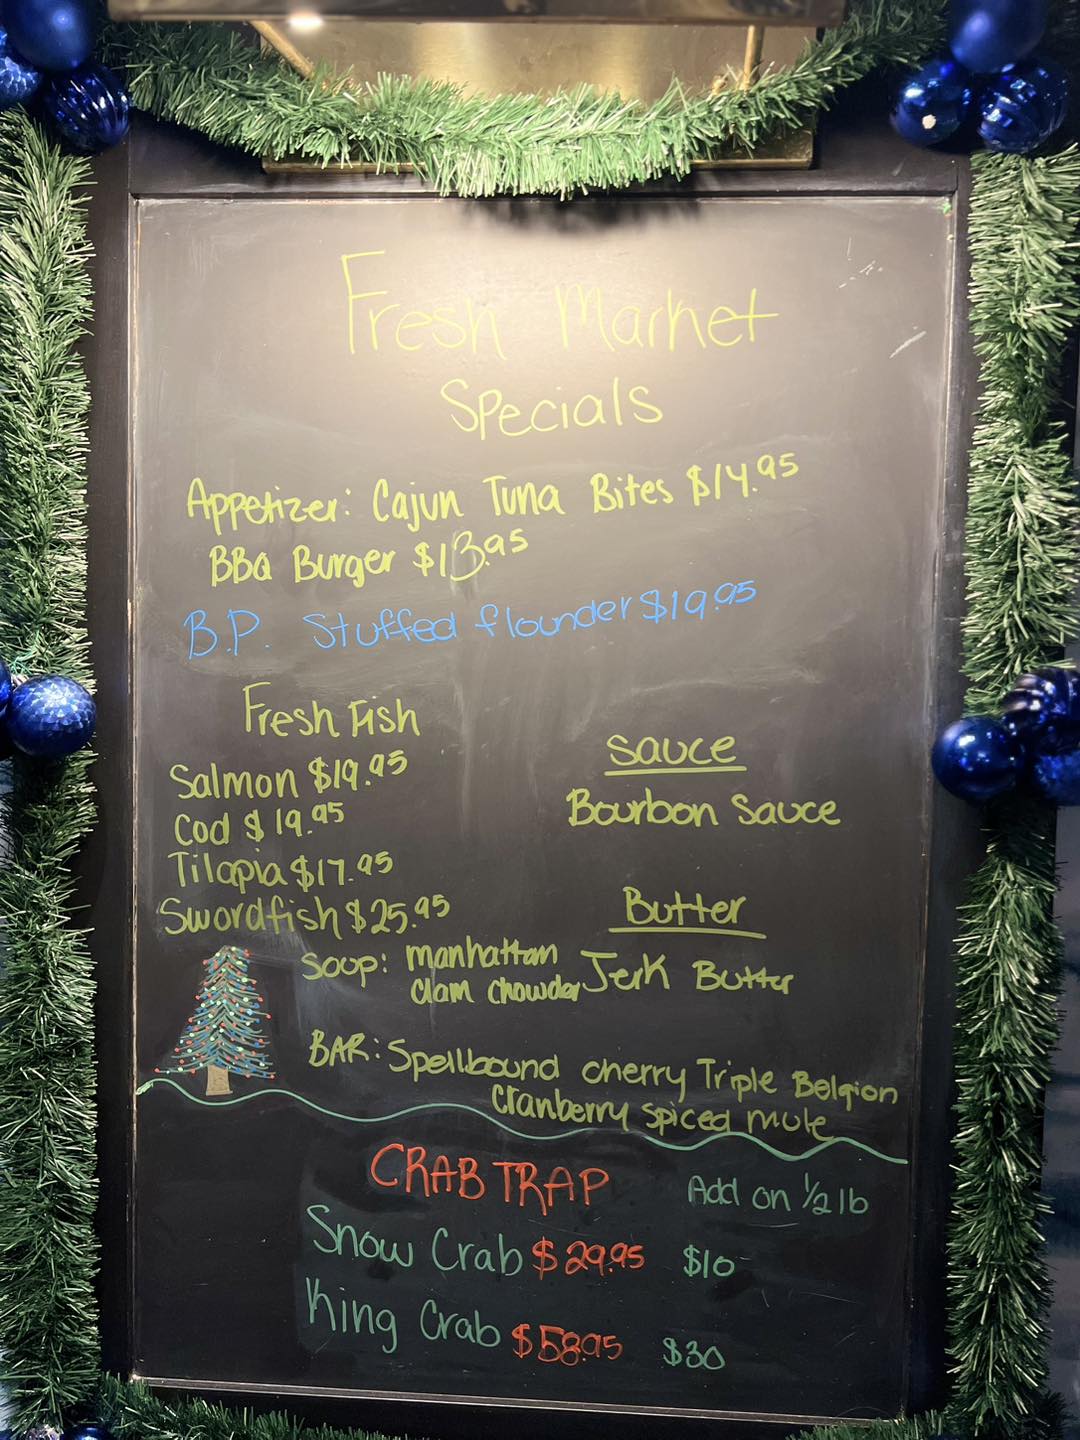 Fresh Market
Specials
Appetizer: Cajun Tuna Bites $14.95
BBQ Burger $13.95
B.P. Stuffed flounder $19.95
Fresh Fish
Salmon $19.95
Cod $19.95
Tilapia $17.95
Swordfish $25.95
Sauce
Bourbon Sauce
Butter
Jerk Butter
Soup: Manhattan
Clam Chowder
BAR: Spellbound cherry Triple Belgion
Cranberry spiced mule
CRAB TRAP Add on 1/2 lb
Snow Crab $29.95 $10
King Crab $58.95 $30